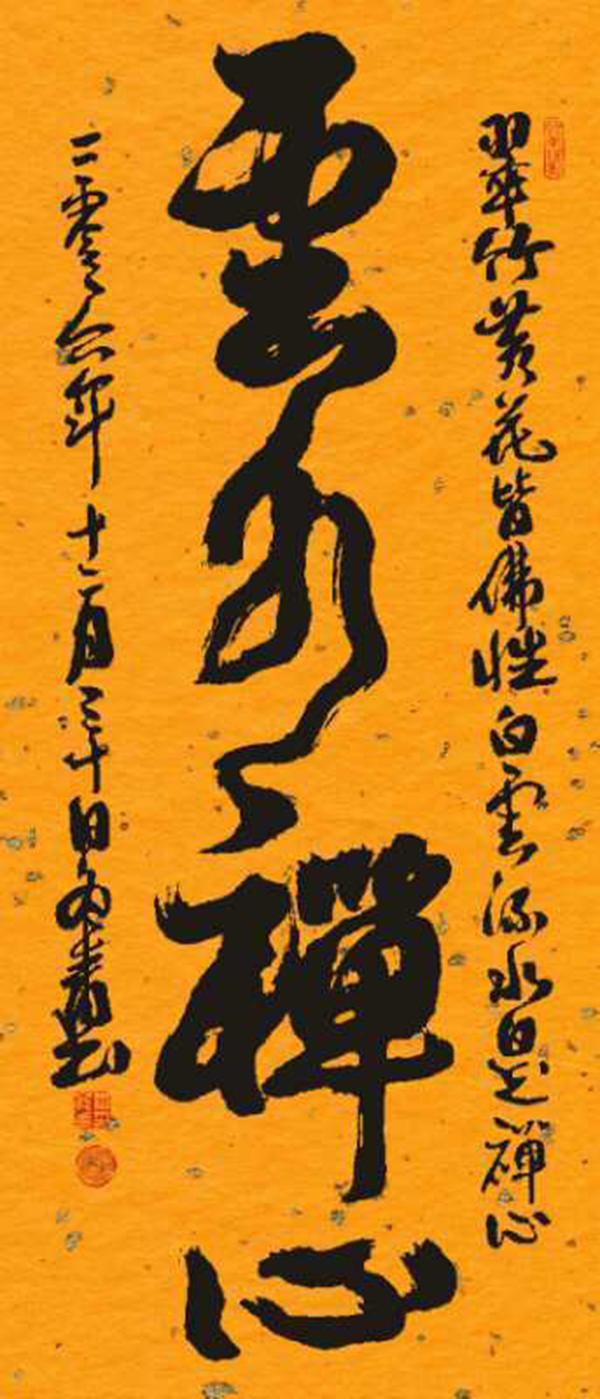 翠竹黄花皆佛性白雲流水是禪心
雲水禪心
二零六年十二月三十日書